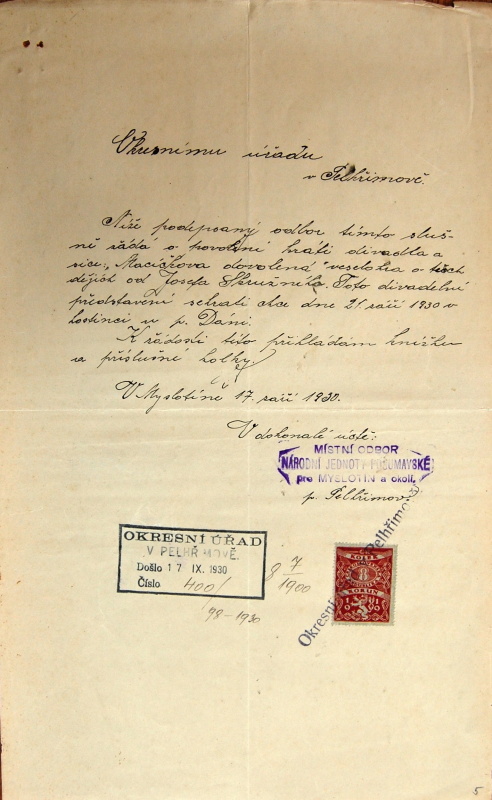 Okresnímu úřadu
v Pelhřimově.
Níže podepsaný odbor tímto sluš-
ně žádá o povolení hráti divadlo a
sice: „Macíčkova dovolená", veselohra o třech
dějích od Josefa Skružného. Toto divadelní
představení sehráti chce dne 21. září 1930 v
hostinci u p. Dáni.
K žádosti této přikládám knížku
a příslušné kolky.
V Myslotíně 17. září 1930.
V dokonalé úctě:
MÍSTNÍ ODBOR
NÁRODNÍ JEDNOTY POŠUMAVSKÉ
pro MYSLOTÍN a okolí,
p. Pelhřimov
OKRESNÍ ÚŘAD
V PELHŘIMOVĚ.
Došlo 17 IX. 1930
Číslo 400/
/98-1930
8 7/1900
Okresní Pelhřimov
KOLEK
8
KORUN
5